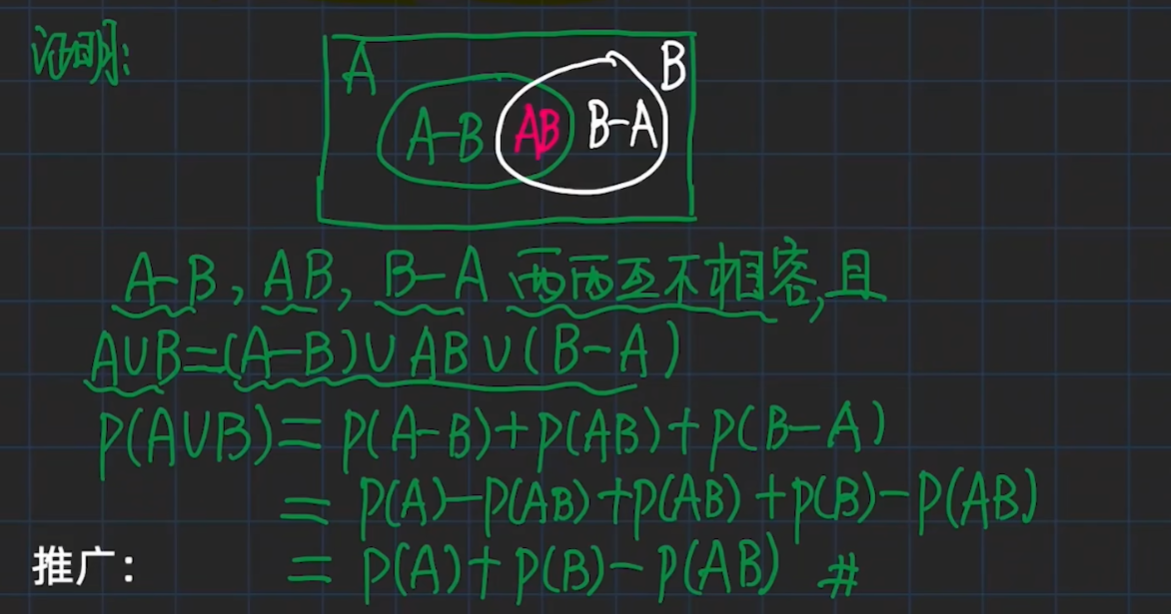 证明:
A B
A-B AB B-A
A-B, AB, B-A 两两互不相容,且
A∪B=(A-B)∪AB∪(B-A)
P(A∪B)=P(A-B)+P(AB)+P(B-A)
=P(A)-P(AB)+P(AB)+P(B)-P(AB)
推广: =P(A)+P(B)-P(AB) #